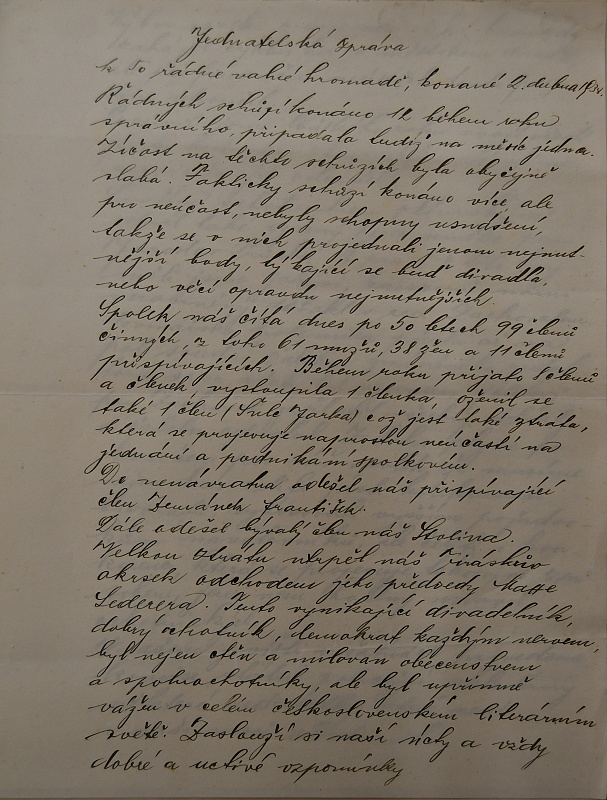 Jednatelská zpráva
k 50 řádné valné hromadě, konané 2. dubna
Řádných schůzí konáno 12 během roku
správního, připadala tudíž na měsíc jedna.
Účast na těchto schůzích byla obyčejně
slabá. Fakticky schůzí konáno více, ale
pro neúčast, nebyly schopny usnášení,
takže se v nich projednali jenom nejnut-
nější body, týkající se buď divadla,
nebo věcí opravdu nejnutnějších.
Spolek náš čítá dnes po 50 letech 99 členů
činných, z toho 61 mužů, 38 žen a 11 členů
přispívajících. Během roku přijato 8 členů
a členek, vystoupila 1 členka, oženil se
také 1 člen (Jarka) což jest také ztráta,
která se projevuje naprostou neúčastí na
jednání a podnikání spolkovém.
Do nenávratna odešel náš přispívající
člen Zemánek František.
Dále odešel bývalý člen náš Stolina.
Velkou ztrátu utrpěl náš Jiráskův
okrsek odchodem jeho předsedy
Lederera. Tento vynikající divadelník,
dobrý ochotník, demokrat každým nervem,
byl nejen ctěn a milován obecenstvem
a spoluochotníky, ale byl upřímně
vážen v celém československém literárním
světě. Zaslouží si naší úcty a vždy
dobré a uctivé vzpomínky